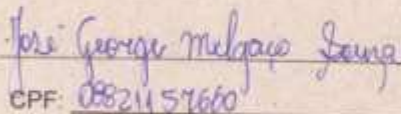 José George Melgaço Souza
CPF: 08821157660